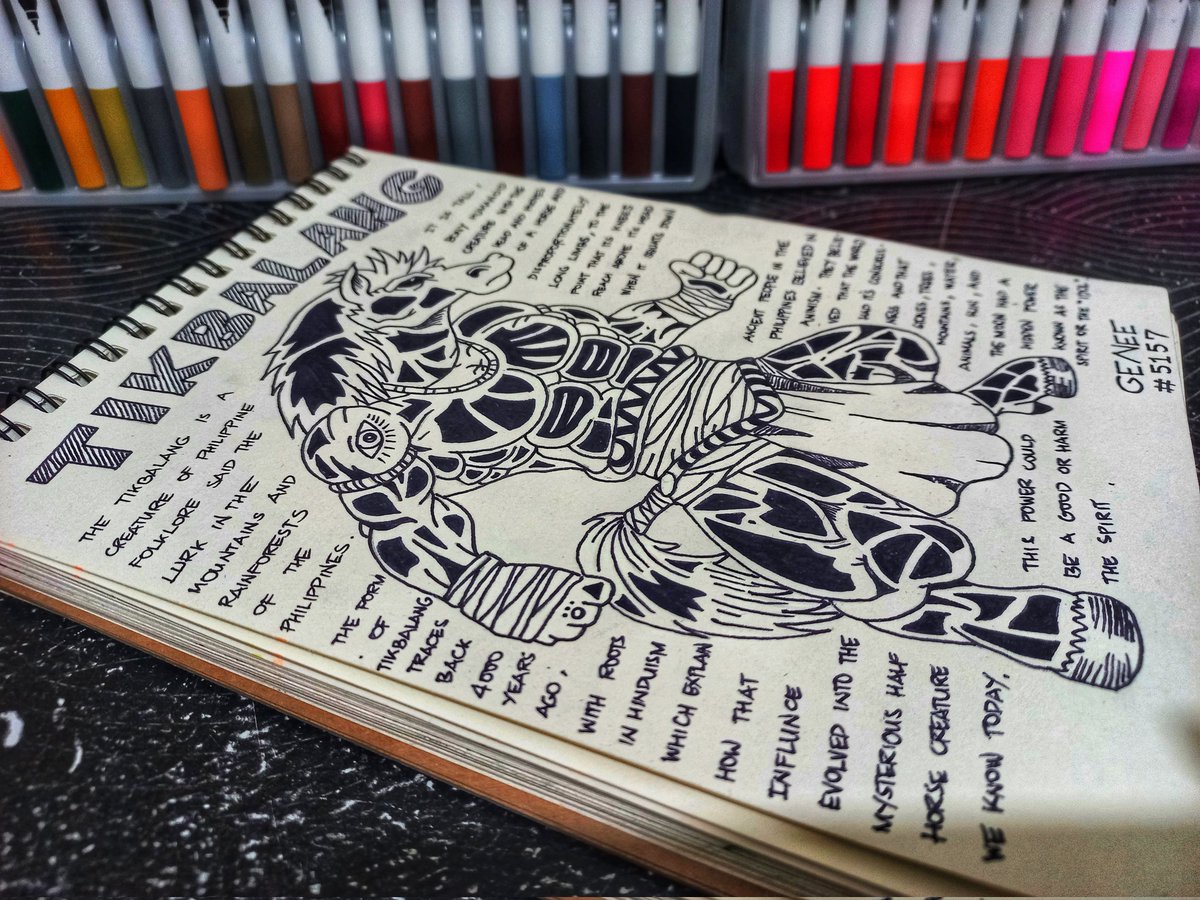 TIKBALANG
THE TIKBALANG IS A
CREATURE OF PHILIPPINE
FOLKLORE SAID THE
LURK IN THE
MOUNTAINS AND
RAINFORESTS
OF THE
PHILIPPINES.
THE FORM
OF
TIKBALANG
TRACES
BACK
4000
YEARS
AGO,
WITH ROOTS
IN HINDUISM
WHICH EXPLAIN
HOW THAT
INFLUNCE
EVOLVED INTO THE
MYSTERIOUS HALF
HORSE CREATURE
WE KNOW TODAY.
IT IS TALL,
BONY HUMANOID
CREATURE WITH THE
HEAD AND HOOVES
OF A HORSE AND
DISPROPORTIONATELY
LONG LIMBS, TO THE
POINT THAT ITS KNEES
REACH ABOVE ITS HEAD
WHEN IT SQUATS DOWN
ANCIENT PEOPLE IN THE
PHILIPPINES BELIEVED IN
ANIMISM. THEY BELIE
VED THAT THE WORLD
AND IT'S
AND THAT
STONES, TREES,
MOUNTAINS, WATER,
ANIMALS, SUN, AND
THE MOON HAD A
HIDDEN POWER
KNOWN AS THE
SPIRIT OR THE "SOUL"
THIS POWER COULD
BE A GOOD OR HARM
THE SPIRIT.
GENEE
#5157